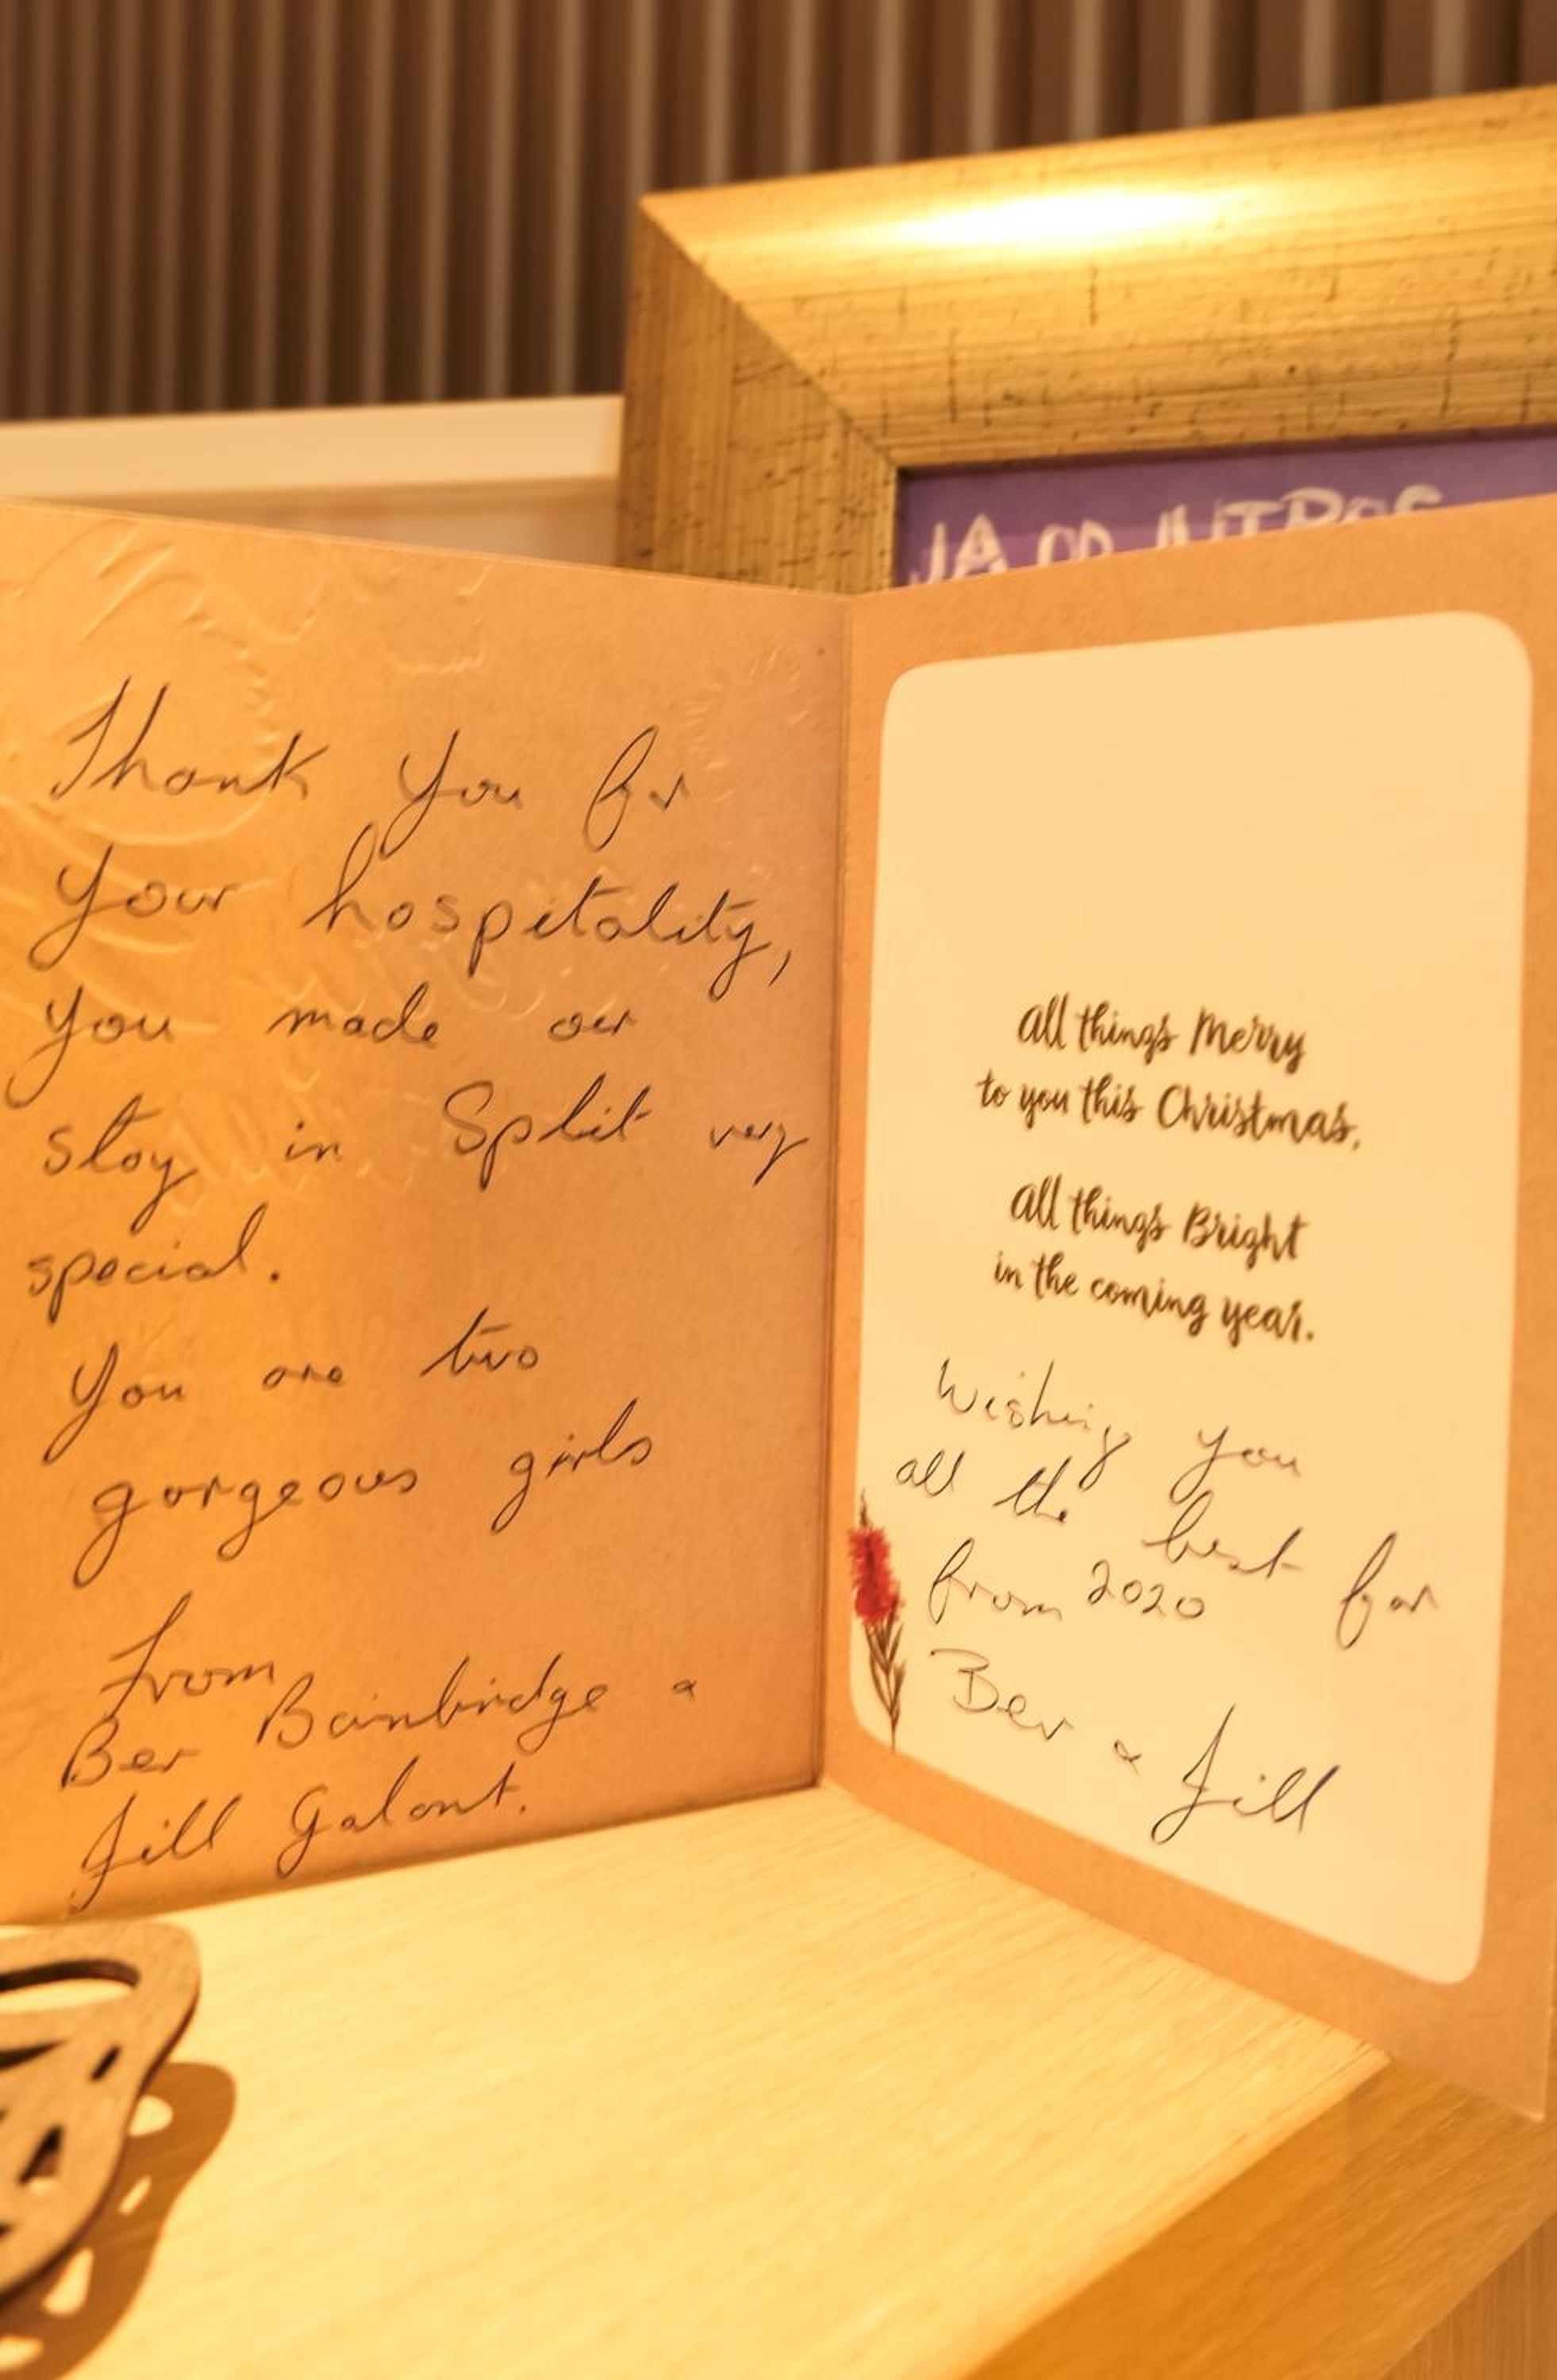 Thank you for
your hospitality,
you made our
stay in Split very
special.
You are two
gorgeous girls
From
Bev Bainbridge &
Jill Galont.
All things Merry
to you this Christmas,
All things Bright
in the coming year.
Wishing you
all the best for
from 2020
Bev & Jill